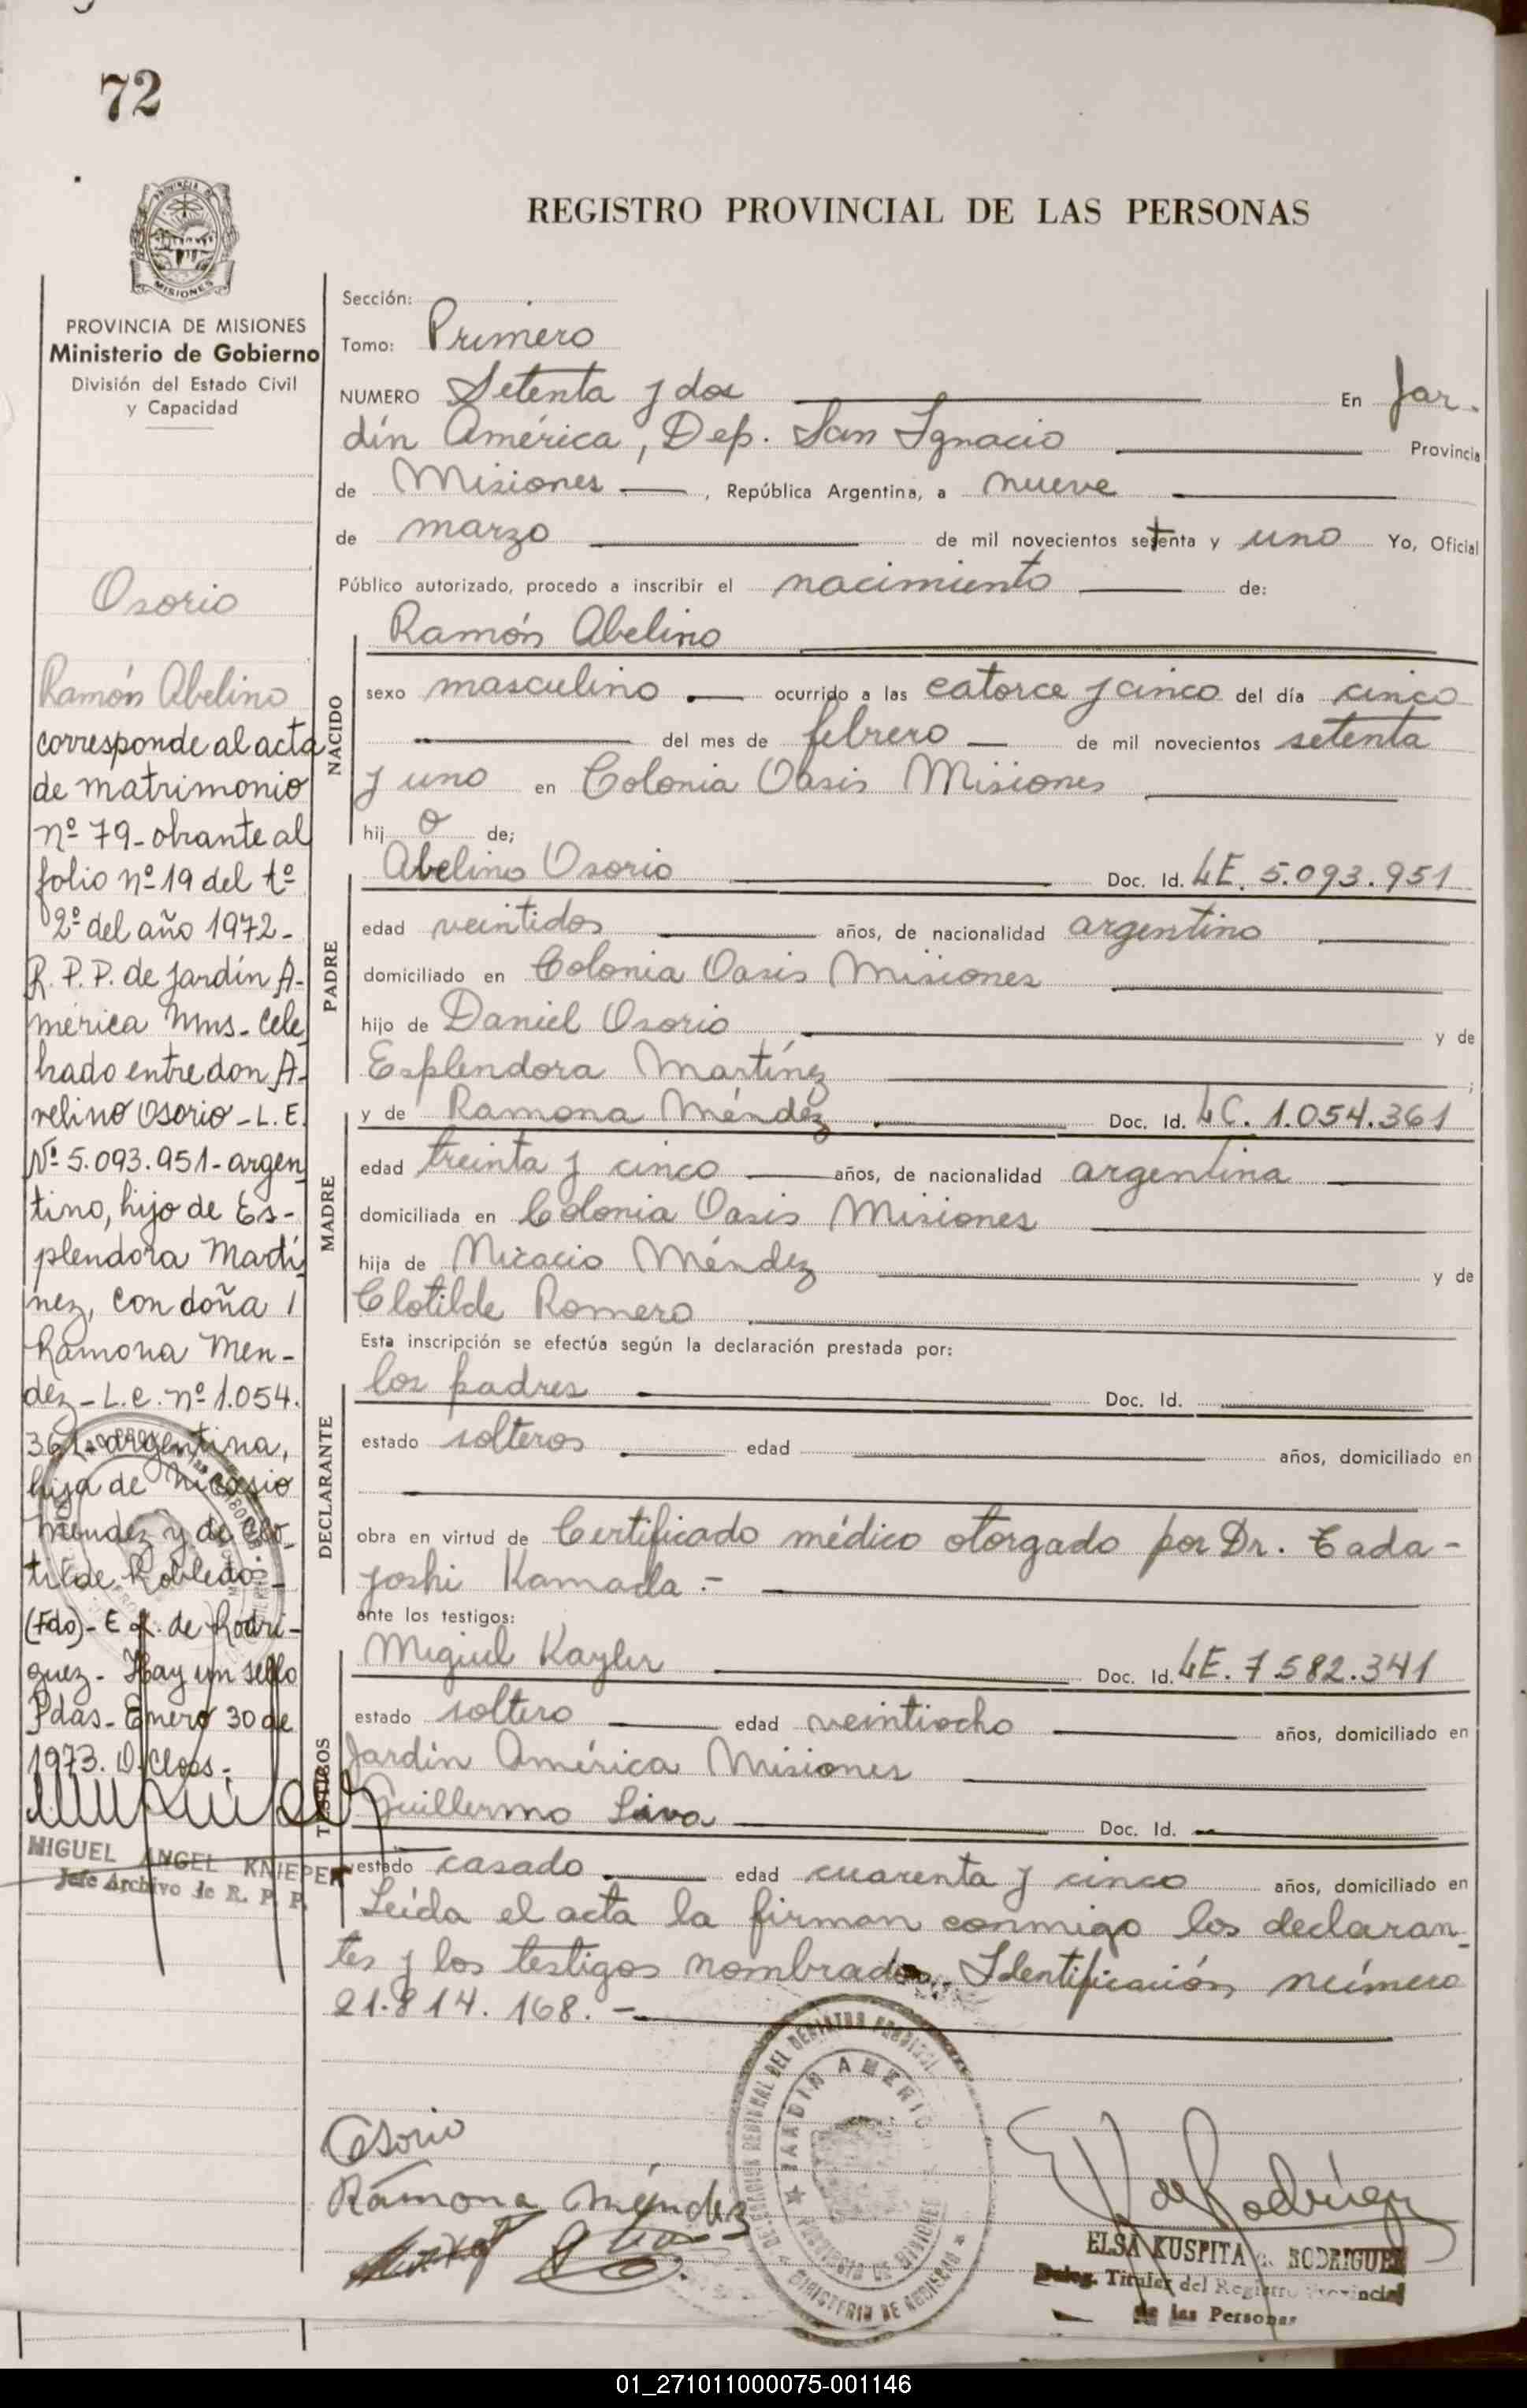 72
PROVINCIA DE MISIONES
Ministerio de Gobierno
División del Estado Civil
y Capacidad
Osorio
Ramón Abelino
corresponde al acta
de matrimonio
nº 79- obrante al
folio nº 19 del tº
2º del año 1972-
R. P. P. de Jardín A-
mérica Mns- Cele
brado entre don A-
velino Osorio - L. E.
Nº 5.093.951- argen
tino, hijo de Es-
plendora Martí
nez, con doña
Ramona Men-
dez - L.C. nº 1.054.
361- argentina,
hija de Nicasio
Mendez y de Clo-
tilde Robledo-
(Fdo)- E K. de Rodri-
guez- Hay un sello
Pdas- Enero 30 de
1973. O. Closs-
MIGUEL ANGEL KNIEPER
Jefe Archivo de R. P. P.
REGISTRO PROVINCIAL DE LAS PERSONAS
Sección:
Tomo: Primero
NUMERO Setenta y dos En Jar-
dín América, Dep. San Ignacio Provincia
de Misiones, República Argentina, a nueve
de marzo de mil novecientos setenta y uno Yo, Oficial
Público autorizado, procedo a inscribir el nacimiento de:
NACIDO
Ramón Abelino
sexo masculino ocurrido a las catorce y cinco del día cinco
del mes de febrero de mil novecientos setenta
y uno en Colonia Oasis Misiones
hijo de;
PADRE
Abelino Osorio Doc. Id. LE. 5.093.951
edad veintidos años, de nacionalidad argentino
domiciliado en Colonia Oasis Misiones
hijo de Daniel Osorio y de
Esplendora Martínez ;
MADRE
y de Ramona Méndez Doc. Id. LC. 1.054.361
edad treinta y cinco años, de nacionalidad argentina
domiciliada en Colonia Oasis Misiones
hija de Nicacio Méndez y de
Clotilde Romero
Esta inscripción se efectúa según la declaración prestada por:
DECLARANTE
los padres Doc. Id.
estado solteros edad años, domiciliado en
obra en virtud de Certificado médico otorgado por Dr. Tada-
yoshi Kamada.-
ante los testigos:
TESTIGOS
Miguel Kayler Doc. Id. LE. 7582.341
estado soltero edad veintiocho años, domiciliado en
Jardín América Misiones
Guillermo Doc. Id.
estado casado edad cuarenta y cinco años, domiciliado en
Leída el acta la firman conmigo los declaran-
tes y los testigos nombrados. Identificación número
21.814.168.-
Osorio
Ramona Méndez
JARDIN AMERICA
E K de Rodríguez
ELSA KUSPITA d. RODRIGUEZ
Deleg. Titular del Registro Provincial
de las Personas
01_271011000075-001146